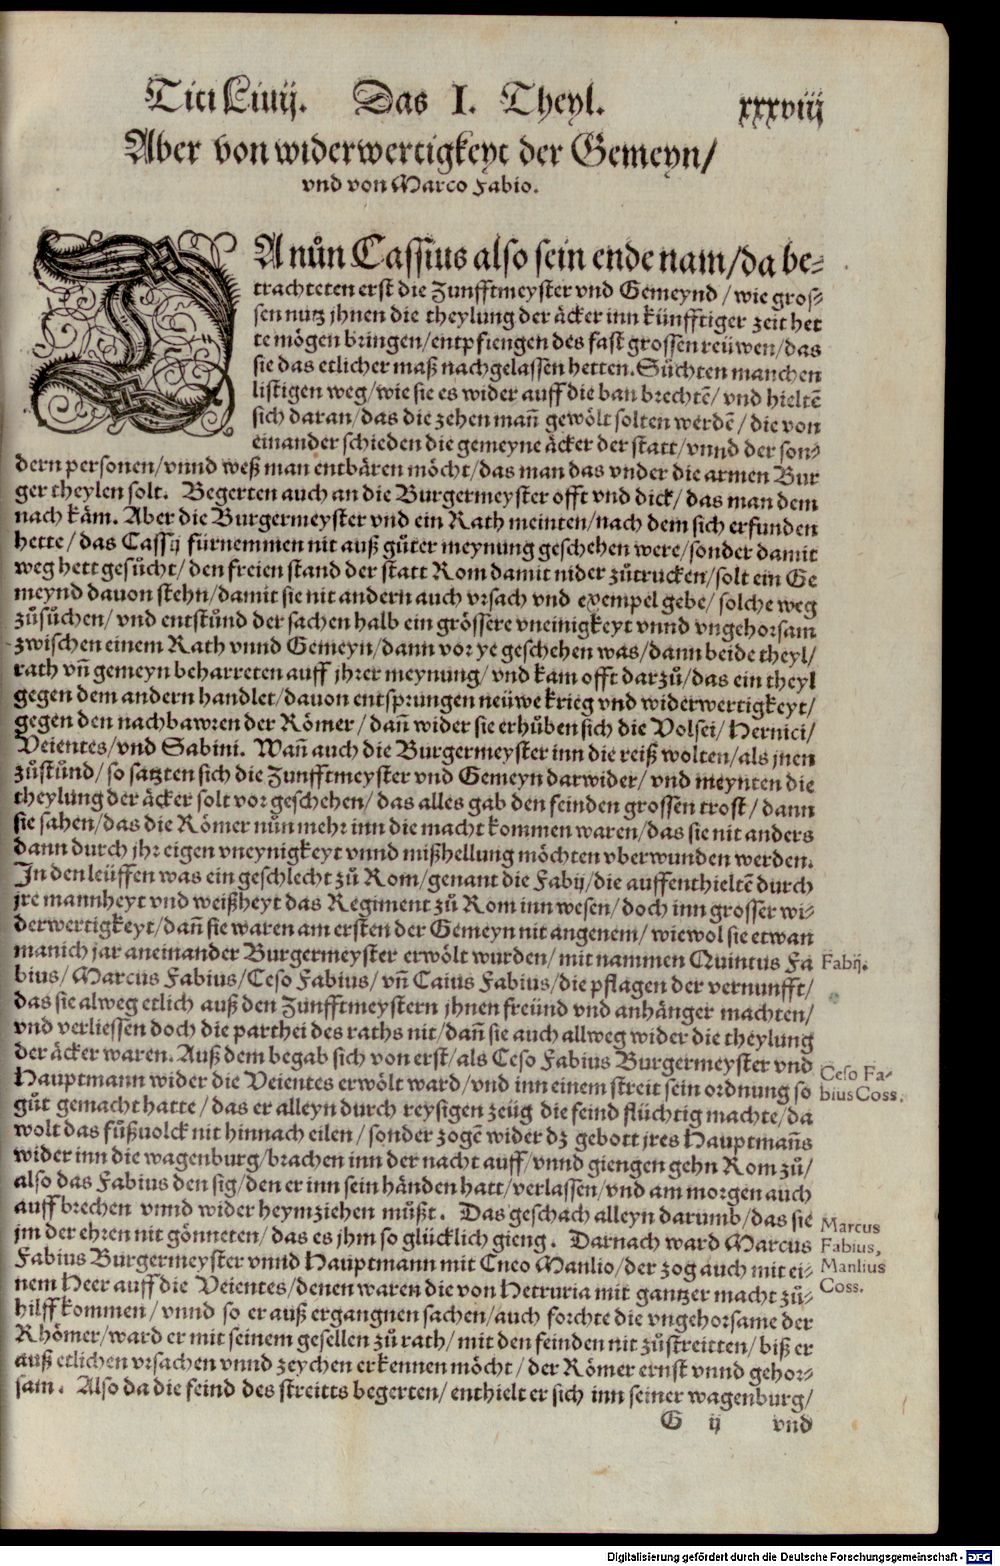 Titi Liuij. Das I. Theyl. xxxviij
Aber von widerwertigkeyt der Gemeyn/
vnd von Marco Fabio.
DA nůn Cassius also sein ende nam/da be-
trachteten erst die Zunfftmeyster vnd Gemeynd/wie gros-
sen nutz jhnen die theylung der äcker inn künfftiger zeit het
te mögen bringen/entpfiengen des fast grossen reüwen/das
sie das etlicher maß nachgelassen hetten. Sůchten manchen
listigen weg/wie sie es wider auff die ban brechtē/ vnd hieltē
sich daran/das die zehen mañ gewölt solten werdē/ die von
einander schieden die gemeyne äcker der statt/vnnd der son-
dern personen/vnnd weß man entbären möcht/das man das vnder die armen Bur
ger theylen solt. Begerten auch an die Burgermeyster offt vnd dick/ das man dem
nach käm. Aber die Burgermeyster vnd ein Rath meinten/nach dem sich erfunden
hette/das Cassij fürnemmen nit auß gůter meynung geschehen were/sonder damit
weg hett gesůcht/den freien stand der statt Rom damit nider zůtrucken/solt ein Ge
meynd davon stehn/damit sie nit andern auch vrsach vnd exempel gebe/ solche weg
zůsůchen/ vnd entstůnd der sachen halb ein grössere vneinigkeyt vnnd vngehorsam
zwischen einem Rath vnnd Gemeyn/dann vor ye geschehen was/dann beide theyl/
rath vñ gemeyn beharreten auff jhrer meynung/ vnd kam offt darzů/das ein theyl
gegen dem andern handlet/davon entsprungen neüwe krieg vnd widerwertigkeyt/
gegen den nachbawren der Römer/ dañ wider sie erhůben sich die Volsci/Hernici/
Veientes/vnd Sabini. Wañ auch die Burgermeyster inn die reiß wolten/als jnen
zůstůnd/so satzten sich die Zunfftmeyster vnd Gemeyn darwider/ vnd meynten die
theylung der äcker solt vor geschehen/das alles gab den feinden grossen trost/ dann
sie sahen/das die Römer nůn mehr inn die macht kommen waren/das sie nit anders
dann durch jhr eigen vneynigkeyt vnnd mißhellung möchten vberwunden werden.
In den leüffen was ein geschlecht zů Rom/genant die Fabij/die auffenthieltē durch
jre mannheyt vnd weißheyt das Regiment zů Rom inn wesen/doch inn grosser wi-
derwertigkeyt/dañ sie waren am ersten der Gemeyn nit angenem/ wiewol sie etwan
manich jar aneinander Burgermeyster erwölt wurden/mit nammen Quintus Fa
Fabij.
bius/Marcus Fabius/Ceso Fabius/ vñ Caius Fabius/die pflagen der vernunfft/
das sie alweg etlich auß den Zunfftmeystern jhnen freünd vnd anhänger machten/
vnd verliessen doch die parthei des raths nit/dañ sie auch allweg wider die theylung
der äcker waren. Auß dem begab sich von erst/als Ceso Fabius Burgermeyster vnd
Ceso Fa-
Hauptmann wider die Veientes erwölt ward/vnd inn einem streit sein ordnung so
bius Coss.
gůt gemacht hatte/das er alleyn durch reysigen zeüg die feind flüchtig machte/da
wolt das fůßuolck nit hinnach eilen/ sonder zogē wider dz gebott jres Hauptmañs
wider inn die wagenburg/brachen inn der nacht auff/vnnd giengen gehn Rom zů/
also das Fabius den sig/den er inn sein händen hatt/verlassen/vnd am morgen auch
auff brechen vnnd wider heymziehen můßt. Das geschach alleyn darumb/das sie
jm der ehren nit gönneten/das es jhm so glücklich gieng. Darnach ward Marcus
Marcus
Fabius Burgermeyster vnnd Hauptmann mit Cneo Manlio/der zog auch mit ei-
Fabius,
nem Heer auff die Veientes/denen waren die von Hetruria mit gantzer macht zů-
Manlius
hilff kommen/ vnnd so er auß ergangnen sachen/auch forchte die vngehorsame der
Coss.
Rhömer/ward er mit seinem gesellen zů rath/mit den feinden nit zůstreitten/biß er
auß etlichen vrsachen vnnd zeychen erkennen möcht/der Römer ernst vnnd gehor-
sam. Also da die feind des streitts begerten/enthielt er sich inn seiner wagenburg/
G ij vnd
Digitalisierung gefördert durch die Deutsche Forschungsgemeinschaft - DFG